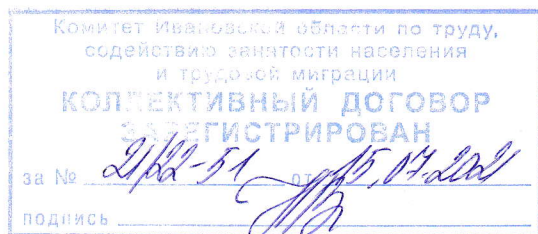 Комитет Ивановской области по труду,
содействию занятости населения
и трудовой миграции
КОЛЛЕКТИВНЫЙ ДОГОВОР
ЗАРЕГИСТРИРОВАН
за № 21/22-51 от 15.07.2021
подпись